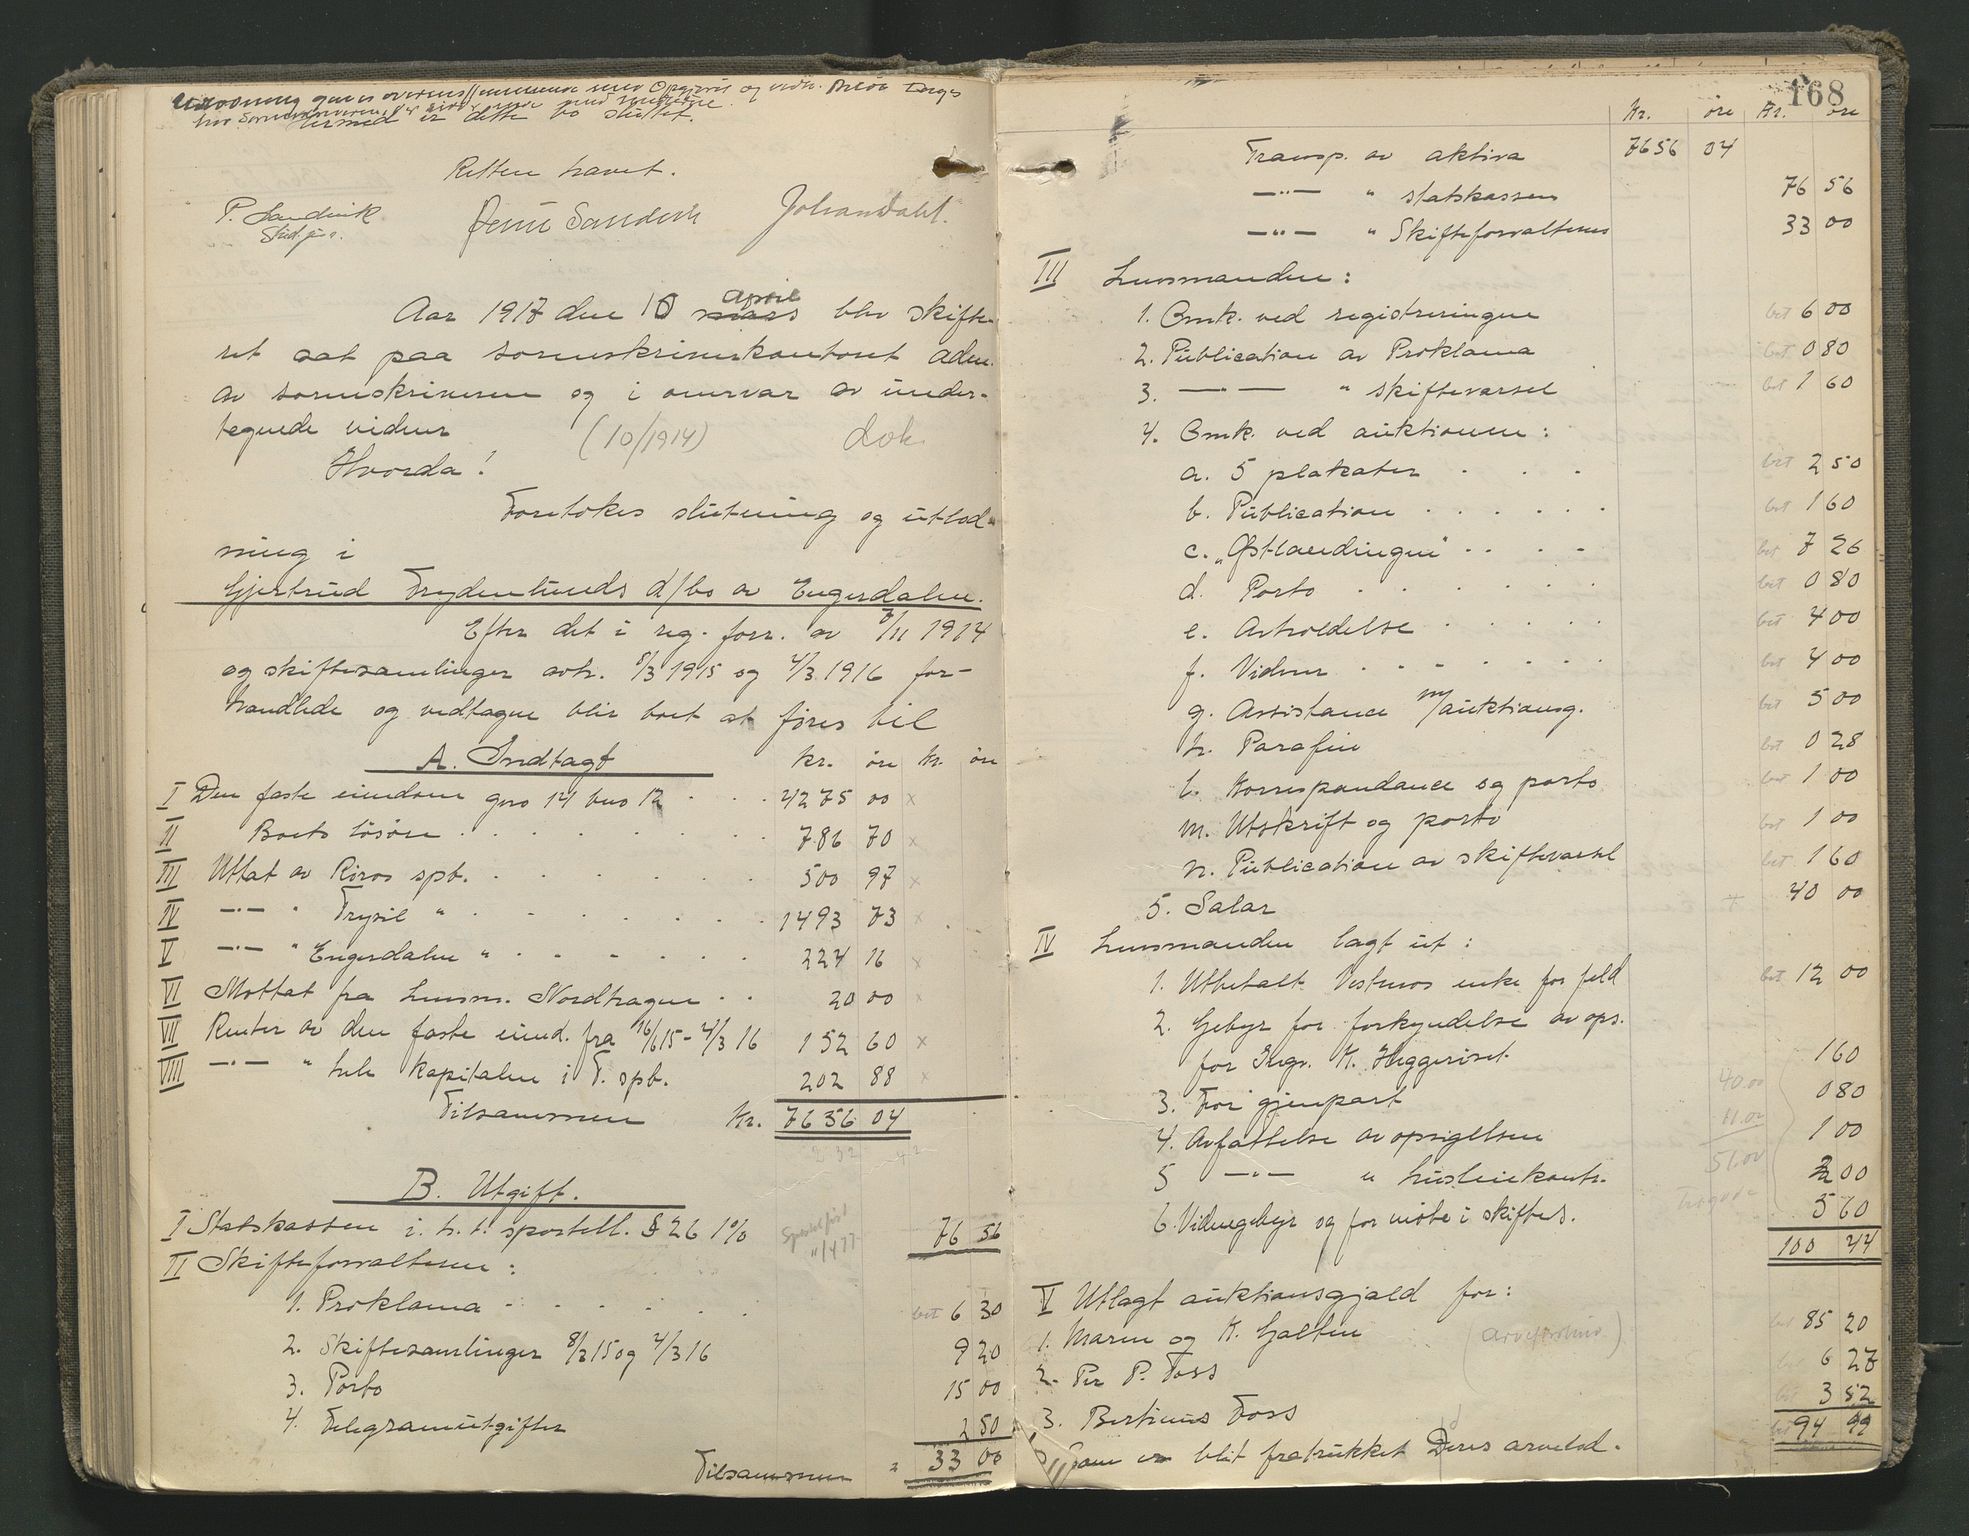 Hermed er dette bo sluttet.
Retten hævet.
P. Sandvik
Stud. jur.
Jenne Sandvik
Johan Dahl.
Aar 1917 den 10 mars april blev skifte-
ret sat paa sorenskriverkontoret adm.
av sorenskriveren og i overvær av under-
tegnede vidner (10/1914) dok.
Hvorda!
Foretokes slutning og utlod-
ning i
Gjertrud Trydenlunds d/bo av Engerdalen.
Efter det i reg. forr. av 7/11 1914
og skiftesamlinger avh. 8/3 1915 og 4/3 1916 for-
handlede og vedtagne blir boet at föres til
A. Indtægt kr. öre kr. öre
I Den faste eiendom gno 14 bno 12 . . . 4275 00 x
II Boets lösöre . . . 786 70 x
III Uttat av Röros spb. . . . 500 97 x
IV —"— " Trysil " . . . 1493 73 x
V —"— " Engerdalen " . . . 224 16 x
VI Mottat fra lensm. Nordhagen . . 20 00 x
VII Renter av den faste eiend. fra 16/6 15 - 4/3 16 152 60 x
VIII —"— " hele kapitalen i T. spb. 202 88 x
Tilsammen Kr. 7656 04
B. Utgift.
I Statskassen i. h. t. sportell. § 26 1% 76 56
II Skifteforvalteren:
1. Proklama . . . bet 6 30
2. Skiftesamlinger 8/3 15 og 4/3 16 9 20
3. Porto 15 00
4. Telegramutgifter 2 50
Tilsammen " 33 00
168
Kr. öre Kr. öre
Transp. av aktiva 7656 04
—"— " statskassen 76 56
—"— " Skifteforvalteren 33 00
III Lensmanden:
1. Omk. ved registreringen bet 6 00
2. Publication av Proklama bet 0 80
3. —"— " skiftevarsel bet 1 60
4. Omk. ved auktionen:
a. 5 plakater . . . bet 2 50
b. Publication . . . bet 1 60
c. "Östlendingen" . . . bet 7 26
d. Porto . . . bet 0 80
e. Avholdelse . . . bet 4 00
f. Vidner . . . bet 4 00
g. Assistance m/auktionsg. bet 5 00
h. Parafin bet 0 28
l. Korrespondance og porto bet 1 00
m. Utskrift og porto bet 1 00
n. Publication av skiftevarsel bet 1 60
5. Salær 40 00
IV Lensmanden lagt ut:
1. Utbetalt Vestmos enke for feld bet 12 00
2. Gebyr for forkyndelse av ops.
for Ingv. K. Heggeriset 1 60
3. For gjenpart 0 80
4. Avfattelse av opsigelsen 1 00
5 —"— " husleiekontr. 2 00
6. Vidnegebyr og for möte i skifter. 5 60
40.00
11.00
51.00
100 44
V Utlagt auktionsgjæld for:
1. Maren og K. Galten bet 85 20
2. Per P. Foss bet 6 27
3. Bertinus Foss bet 3 52
Som er blit fratrukket Deres arvelod. bet 94 99